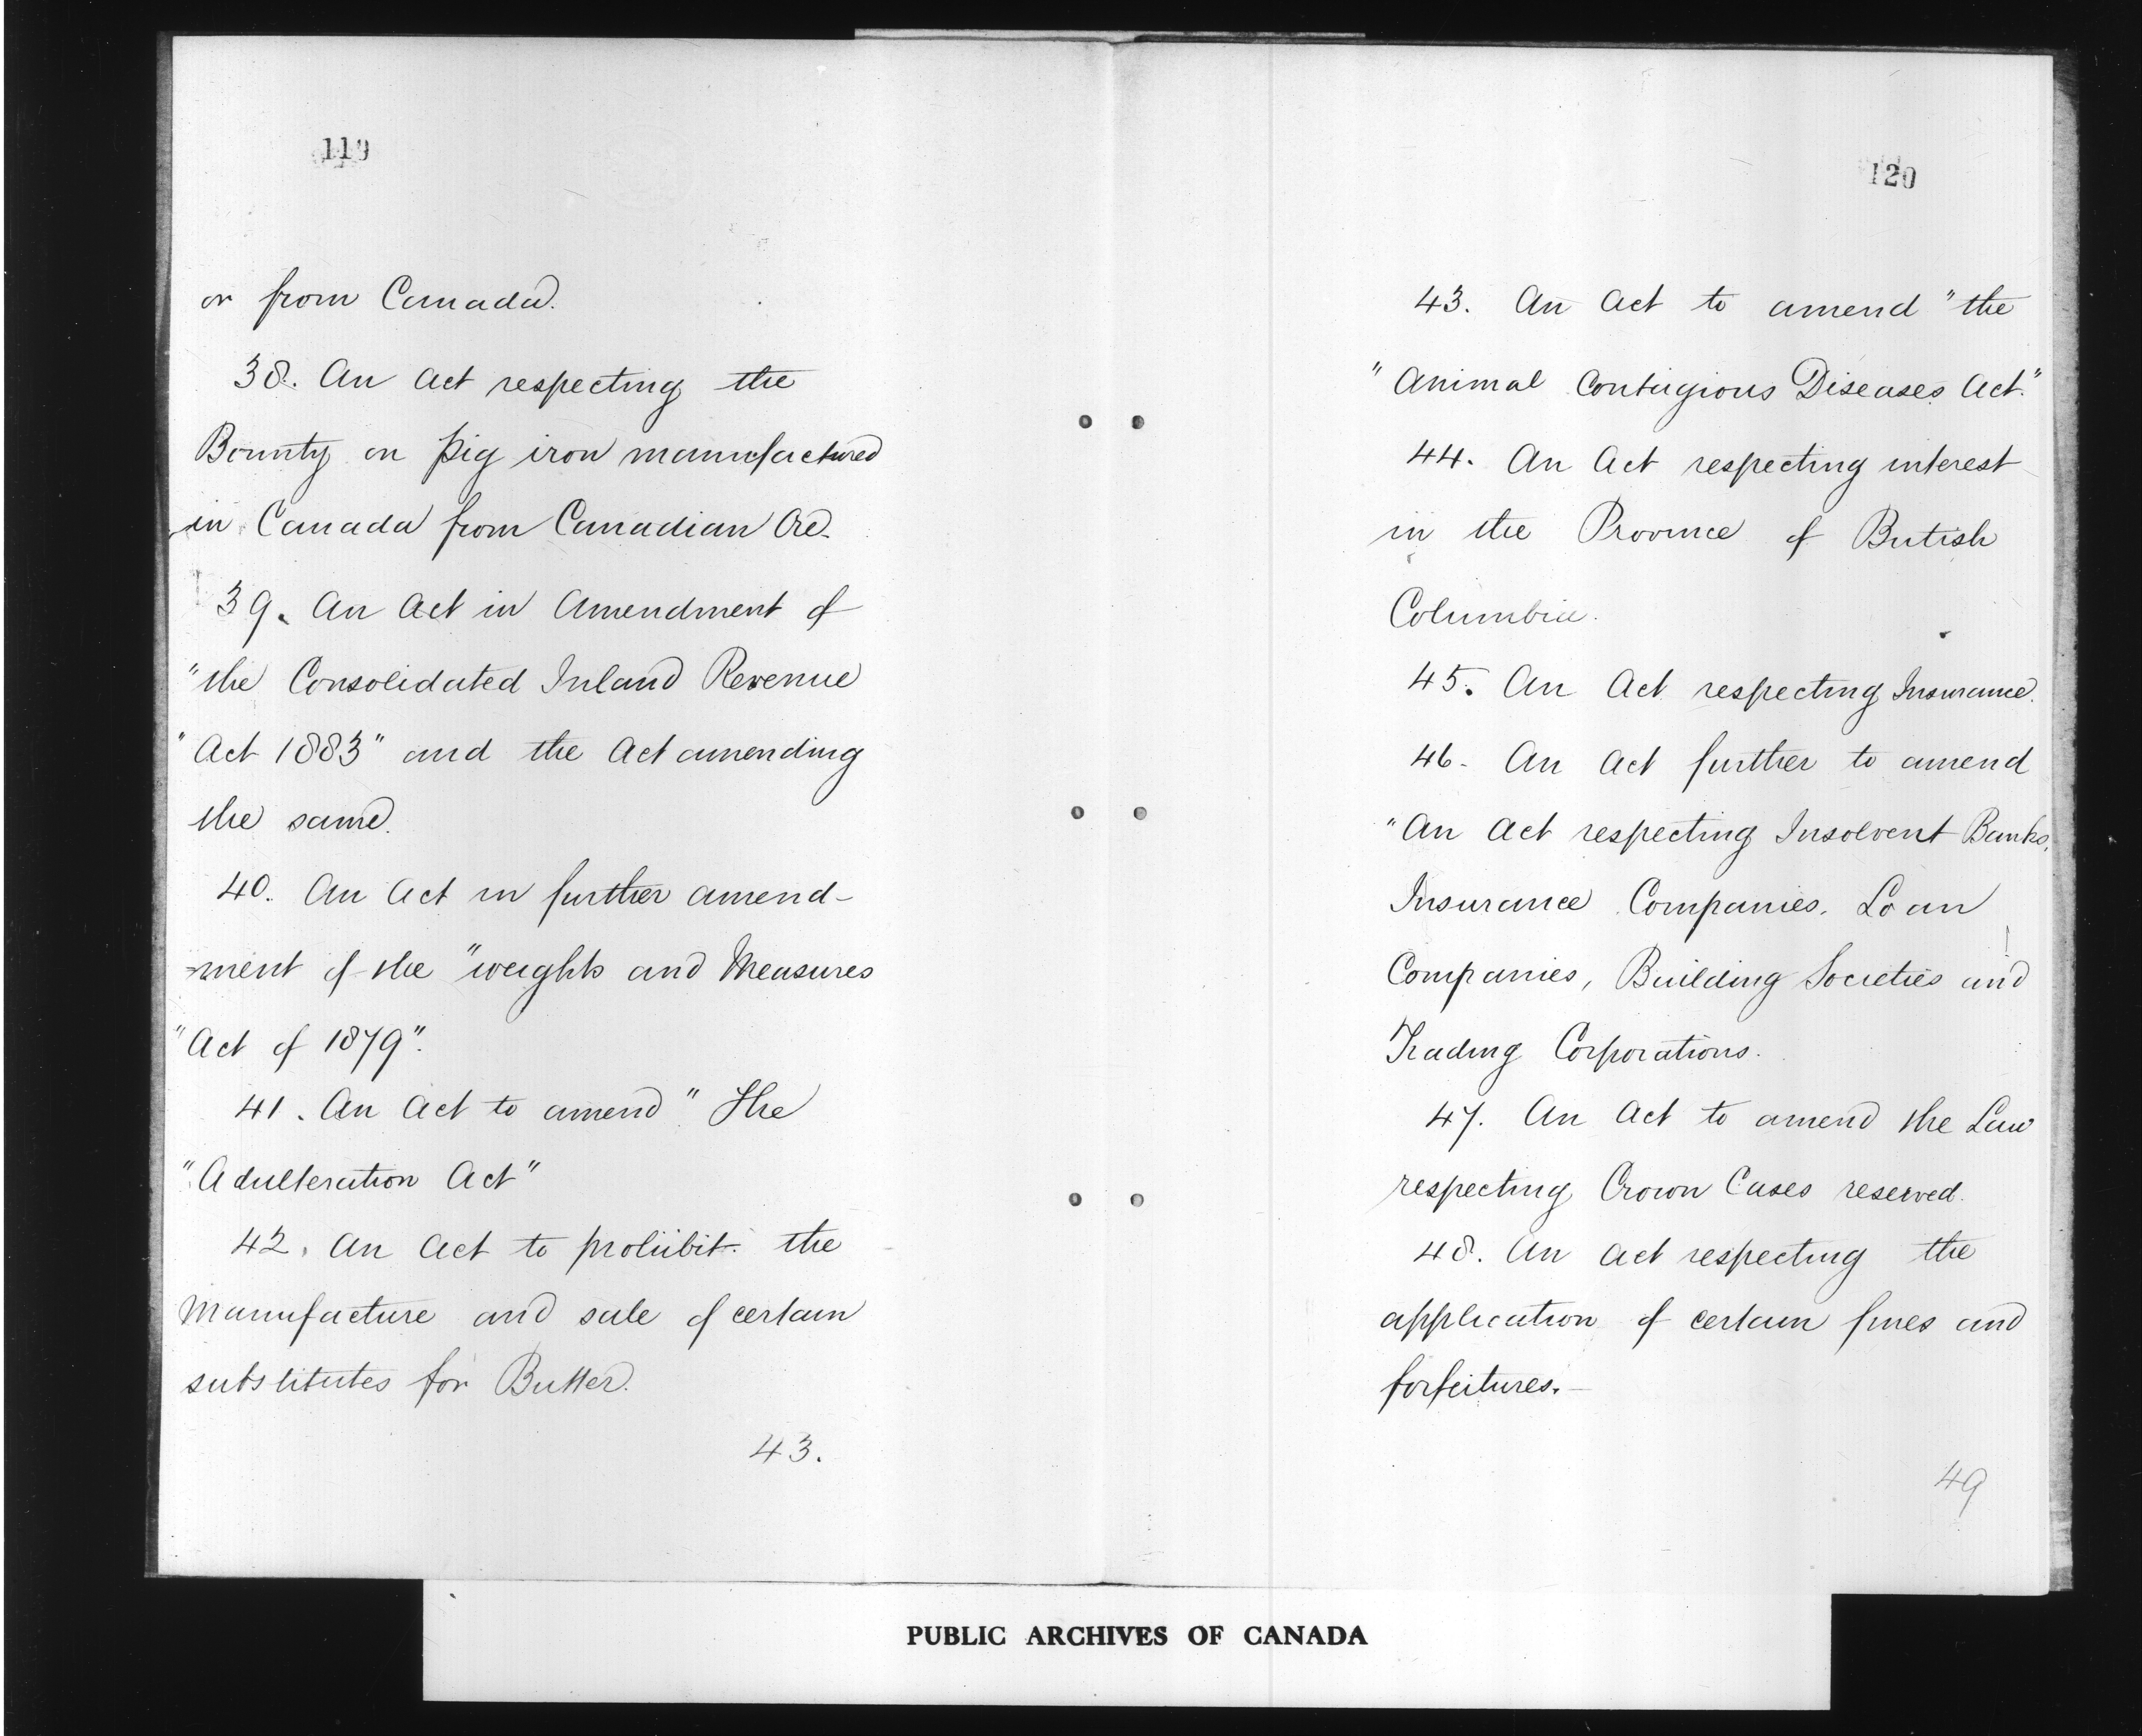 119
or from Canada.
38. An Act respecting the
Bounty on pig iron manufactured
in Canada from Canadian Ore.
39. An Act in Amendment of
"the Consolidated Inland Revenue
"Act 1883" and the Act amending
the same.
40. An Act in further amend-
=ment of the "weights and Measures
"Act of 1879".
41. An Act to amend "The
"Adulteration Act"
42. An Act to prohibit the
Manufacture and sale of certain
substitutes for Butter.
43.
120
43. An Act to amend "the
"Animal Contagious Diseases Act."
44. An Act respecting interest
in the Province of British
Columbia.
45. An Act respecting Insurance.
46. An Act further to amend
"An Act respecting Insolvent Banks,
Insurance Companies, Loan
Companies, Building Societies and
Trading Corporations.
47. An Act to amend the Law
respecting Crown Cases reserved.
48. An Act respecting the
application of certain fines and
forfeitures.—
49
PUBLIC ARCHIVES OF CANADA